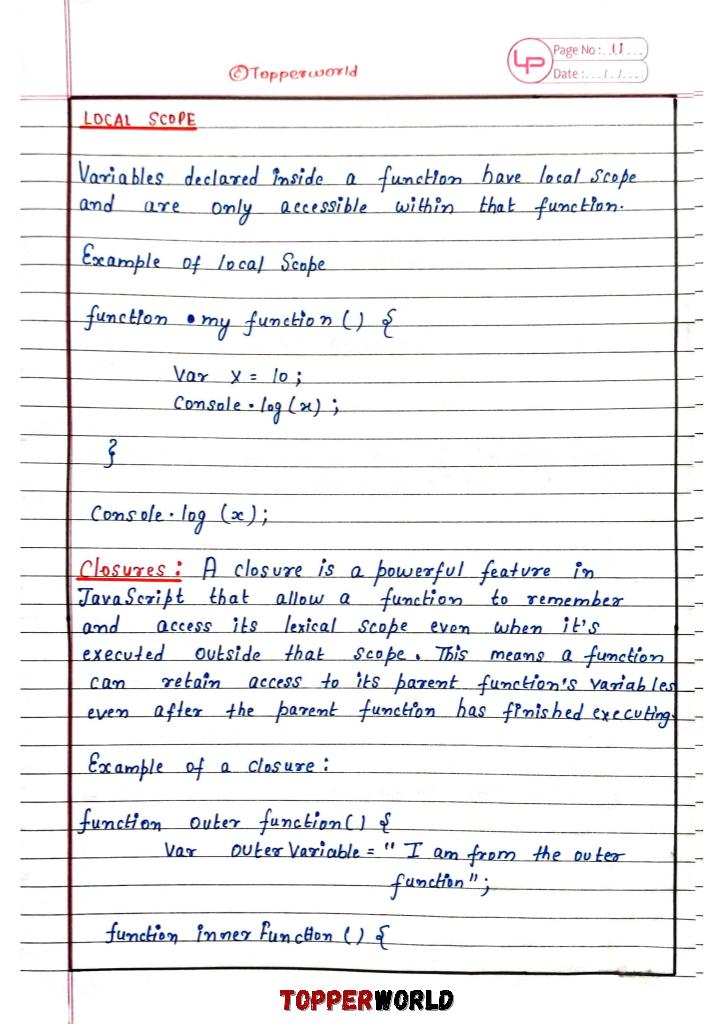 ©Topperworld
LP
Page No:
Date:
LOCAL SCOPE
Variables declared inside a function have local scope
and are only accessible within that function.
Example of local Scope
function • my function() {
Var X = 10;
Console.log(x);
}
Console.log (x);
Closures: A closure is a powerful feature in
JavaScript that allow a function to remember
and access its lexical scope even when it's
executed outside that scope. This means a function
can retain access to its parent function's variables
even after the parent function has finished executing.
Example of a closure:
function outer function() {
Var outer Variable = " I am from the outer
function";
function inner Function () {
TOPPERWORLD